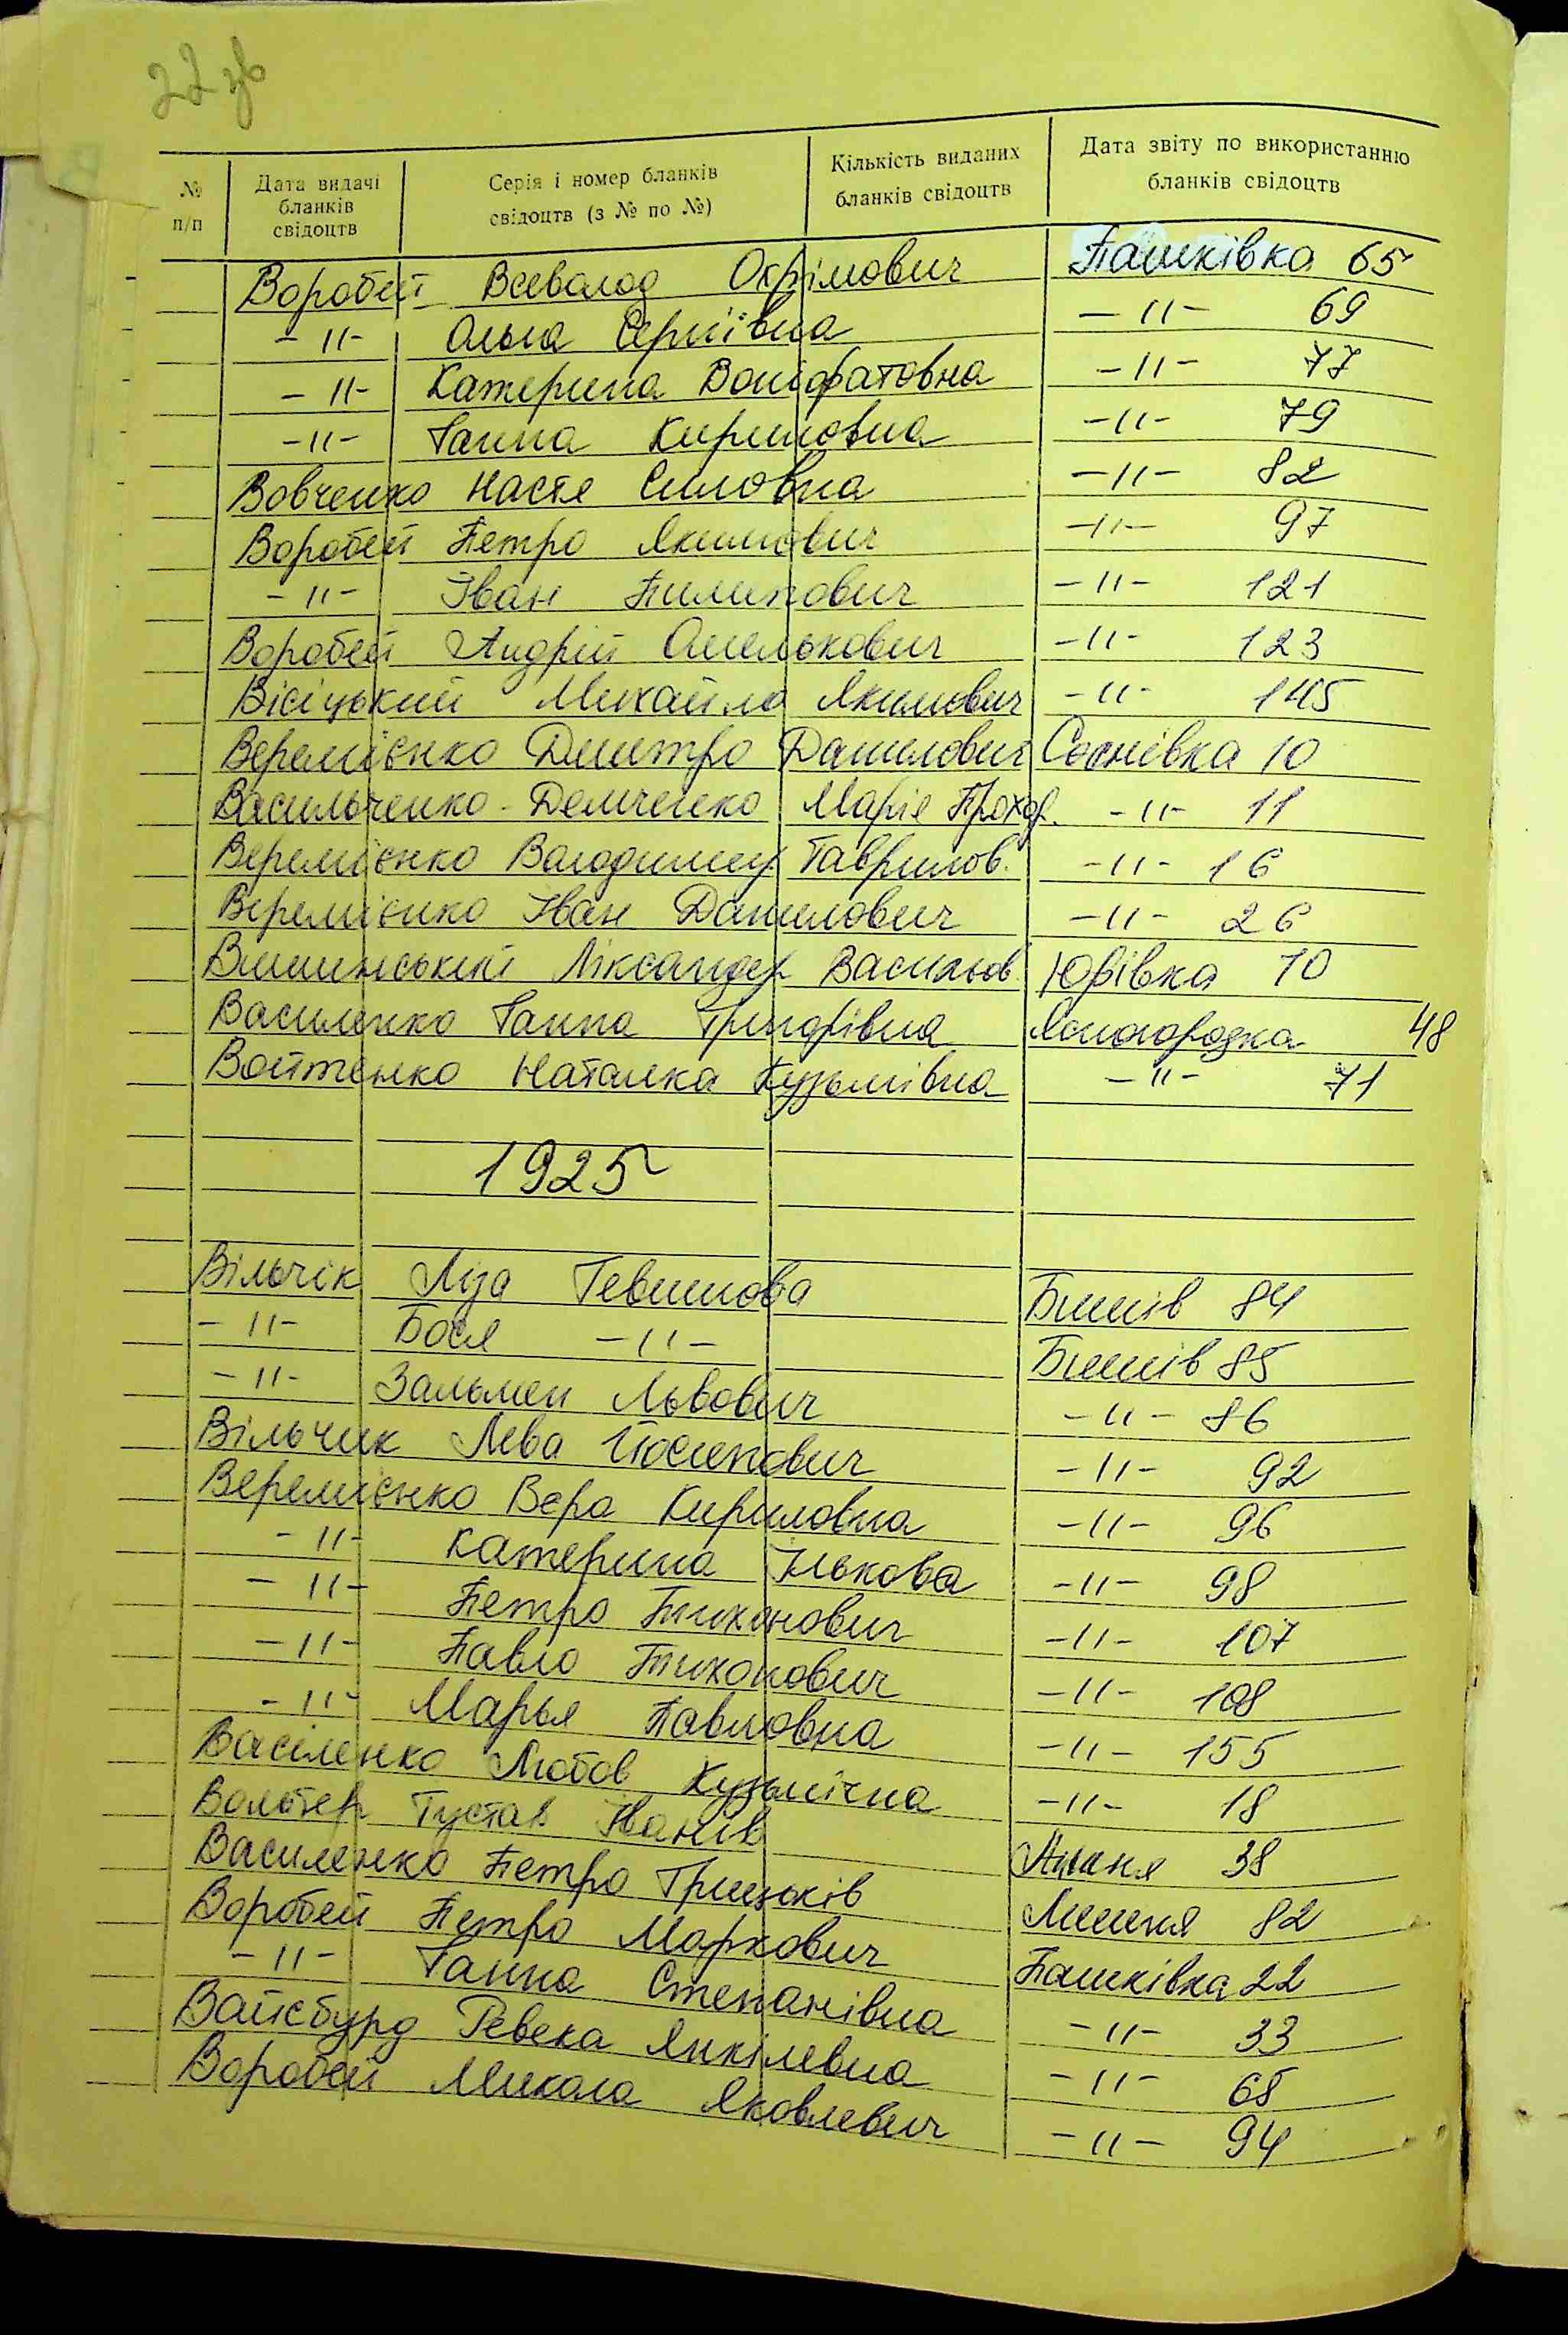 22 зв
№ п/п Дата видачі бланків свідоцтв Серія і номер бланків свідоцтв (з № по №) Кількість виданих бланків свідоцтв Дата звіту по використанню бланків свідоцтв
Воробей Всеволод Охрімович Пашківка 65
-"- Ольга Сергіївна -"- 69
-"- Катерина Воніфатовна -"- 77
-"- Ганна Кириловна -"- 79
Вовченко Настя Силовна -"- 82
Воробей Петро Якимович -"- 97
-"- Іван Пилипович -"- 121
Воробей Андрій Омелькович -"- 123
Вісіцький Михайло Якимович -"- 145
Веремієнко Дмитро Данилович Соснівка 10
Васильченко-Демченко Марія Прохор. -"- 11
Веремієнко Володимир Гаврилов. -"- 16
Веремієнко Іван Данилович -"- 26
Вишинський Ліксандер Васильов. Юрівка 10
Василенко Ганна Григорівна Ясногородка 48
Войтенко Наталка Кузьмівна -"- 71
1925
Вільчік Ліза Гевшиова Бишів 84
-"- Бося -"- Бишів 85
-"- Зальмен Львович -"- 86
Вільчик Лева Йосипович -"- 92
Веремієнко Вєра Кириловна -"- 96
-"- Катерина Ількова -"- 98
-"- Петро Тихонович -"- 107
-"- Павло Тихонович -"- 108
-"- Марья Павловна -"- 155
Василенко Любов Кузьмічна -"- 18
Вольтер Густав Іванів 38
Василенко Петро Грицьків Лишня 82
Воробей Петро Маркович Пашківка 22
-"- Ганна Степанівна -"- 33
Вайсбурд Ревека Янкілевна -"- 68
Воробей Микола Яковлевич -"- 94